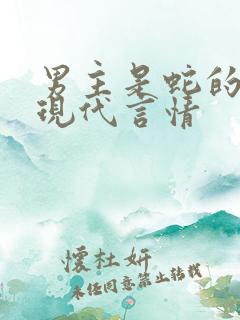 男主是蛇的
現代言情
懷杜妍
未经同意禁止转载